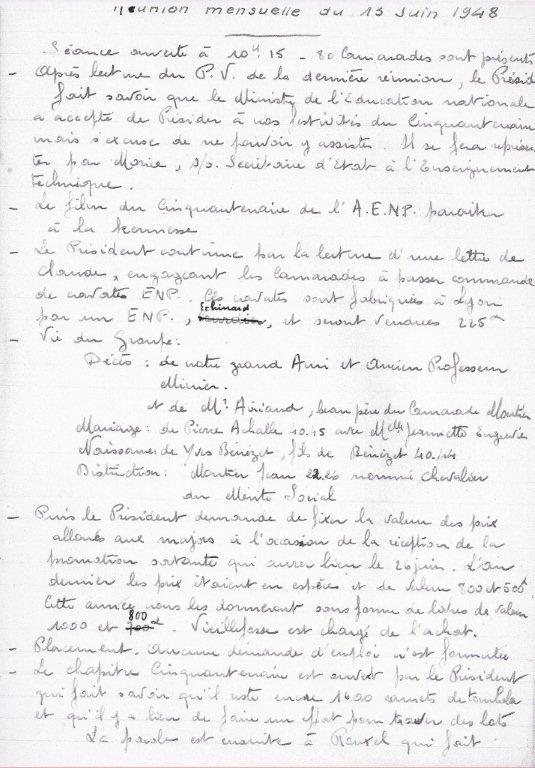 Réunion mensuelle du 13 Juin 1948
Séance ouverte à 10H 15 - 80 Camarades sont présents
- Après lecture du P.V. de la dernière réunion, le Présid
fait savoir que le Ministre de l'Education nationale
a accepté de Présider à nos festivités du Cinquantenaire
mais s'excuse de ne pouvoir y assister. Il se fera représen
ter par Morice, s/s. Secrétaire d'Etat à l'Enseignement
technique.
- Le film du Cinquantenaire de l'A.E.N.P. paraitra
à la kermesse
- Le Président continue par la lecture d'une lettre de
Claude, engageant les Camarades à passer commande
de cravates ENP. Ces cravates sont fabriquées à Lyon
par un ENP, Echinard, et seront vendues 225
- Vie du Groupe:
Décès : de notre grand Ami et Ancien Professeur
Minier.
et de Mr Airiaud, beau père du Camarade Montier
Mariage : de Pierre Achalle 40.45 avec Melle Jeannette
Naissance de Yves Bénézet, fils de Bénézet 40.44
Distinction : Montier Jean nommé Chevalier
du Mérite Social
- Puis le Président demande de fixer la valeur des prix
alloués aux majors à l'occasion de la réception de la
promotion sortante qui aura lieu le 26 juin. L'an
dernier les prix étaient en espèces et de valeur 800 et 500
Cette année nous les donnerons sous forme de livres de valeur
1000 et 800. Vieillefosse est chargé de l'achat.
- Placement. Aucune demande d'emploi n'est formulée
- Le chapitre Cinquantenaire est ouvert par le Président
qui fait savoir qu'il reste encore 1600 carnets de tombola
et qu'il y a lieu de faire un effort pour trouver des lots
La parole est ensuite à Rouxel qui fait